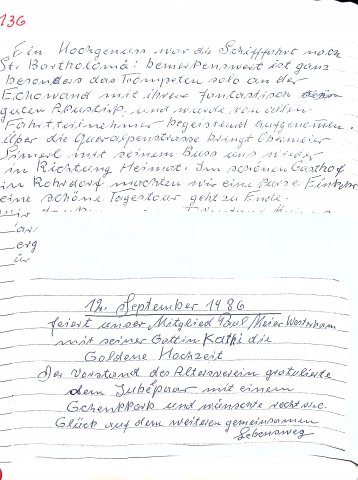 136
Ein Hochgenuss war die Schiffahrt nach
St. Bartholomä: bemerkenswert ist ganz
besonders das Trompeten solo an der
Echowand mit ihrer fantastisch
guten Akustik, und wurde von allen
Fahrtteilnehmer begeisternd aufgenommen.
Über die Queralpenstrasse bringt Obermeier
Simert mit seinem Buss uns wieder
in Richtung Heimat. Im schönen Gasthof
in Rohrdorf machten wir eine kurze Einkehr
eine schöne Tagestour geht zu Ende.
wir
erg
ür
12. September 1986
feiert unser Mitglied Paul Meier Westerham
mit seiner Gattin Kathi die
Goldene Hochzeit
Der Vorstand des Altersverein gratulierte
dem Jubelpaar mit einem
Gschenkkorb und wünschte recht viel
Glück auf dem weiteren gemeinsamen
Lebensweg